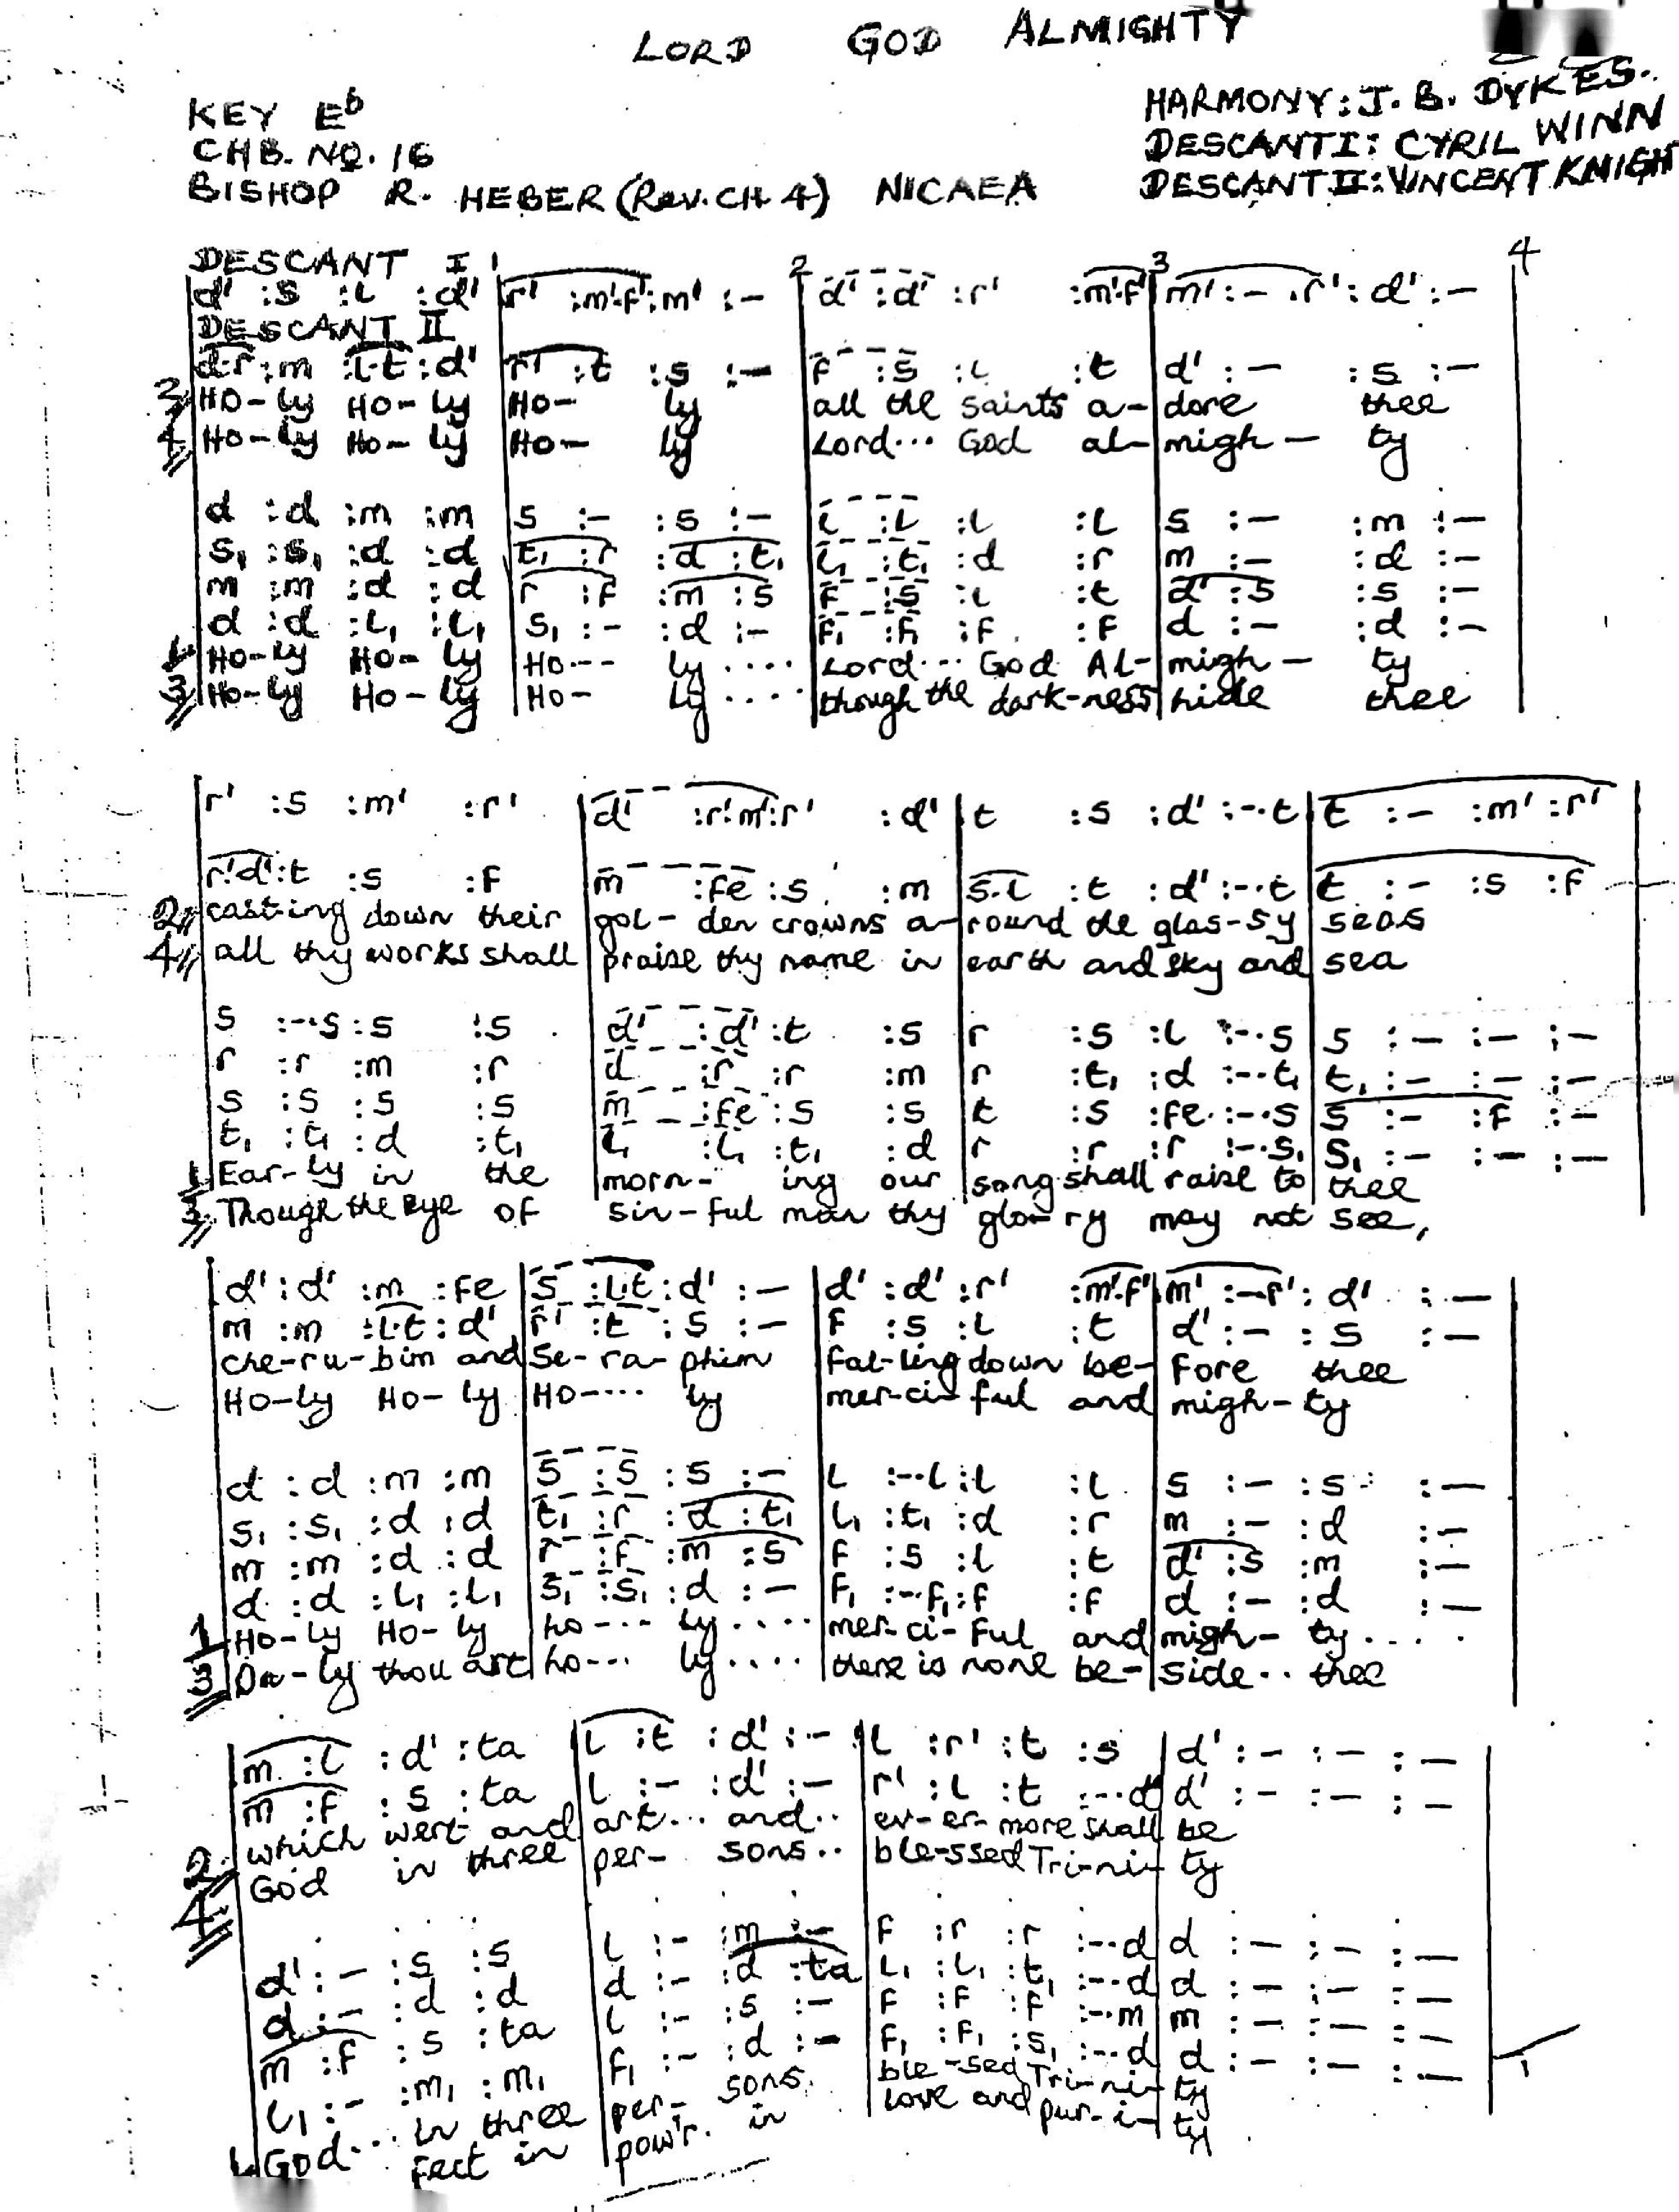 LORD GOD ALMIGHTY
KEY Eb
CHB. NO. 16
BISHOP R. HEBER (Rev. CH 4) NICAEA
HARMONY: J. B. DYKES.
DESCANT I: CYRIL WINN
DESCANT II: VINCENT KNIGH
DESCANT I 1 2 3 4
d' :s :l :d' | r' :m'.f':m' :- | d' :d' :r' :m'.f' | m' :- .r' : d' :-
DESCANT II
d.r :m :l.t :d' | r' :t :s :- | f :s :l :t | d' :- :s :-
2 HO-ly HO-ly | HO- ly | all the saints a- | dore thee
4 HO-ly HO-ly | HO- ly | Lord... God al- | migh- ty
d :d :m :m | s :- :s :- | l :l :l :l | s :- :m :-
s, :s, :d :d | t, :r :d :t, | l, :t, :d :r | m :- :d :-
m :m :d :d | r :f :m :s | f :s :l :t | d' :s :s :-
d :d :l, :l, | s, :- :d :- | f, :f, :f :f | d :- :d :-
1 HO-ly HO-ly | HO--- ly.... | Lord... God Al- | migh- ty
3 HO-ly HO-ly | HO- ly.... | though the dark-ness | hide thee
r' :s :m' :r' | d' :r'.m':r' :d' | t :s :d' :-.t | t :- :m' :r'
r'.d':t :s :f | m :fe :s :m | s.l :t :d' :-.t | t :- :s :f
2 casting down their | gol- den crowns a- | round the glas-sy | seas
4 all thy works shall | praise thy name in | earth and sky and | sea
s :-.s :s :s | d' :d' :t :s | r :s :l :-.s | s :- :- :-
r :r :m :r | d :r :r :m | r :t, :d :-.t, | t, :- :- :-
s :s :s :s | m :fe :s :s | t :s :fe :-.s | s :- :f :-
t, :t, :d :t, | l, :l, :t, :d | r :r :r :-.s, | s, :- :- :-
1 Ear-ly in the | morn- ing our | song shall raise to | thee
3 Though the eye of | sin-ful man thy | glo-ry may not | see,
d' :d' :m :fe | s :l.t :d' :- | d' :d' :r' :m'.f' | m' :-.r' : d' :-
m :m :l.t :d' | r' :t :s :- | f :s :l :t | d' :- :s :-
che-ru-bim and | Se-ra-phim | fal-ling down be- | Fore thee
HO-ly HO-ly | HO-... ly | mer-ci-ful and | migh-ty
d :d :m :m | s :s :s :- | l :-.l :l :l | s :- :s :-
s, :s, :d :d | t, :r :d :t, | l, :t, :d :r | m :- :d :-
m :m :d :d | r :f :m :s | f :s :l :t | d' :s :m :-
d :d :l, :l, | s, :s, :d :- | f, :-.f, :f :f | d :- :d :-
1 HO-ly HO-ly | ho--- ly.... | mer-ci-Ful and | migh- ty....
3 On-ly thou art | ho--- ly.... | there is none be- | side.. thee
m :l :d' :ta | l :t :d' :- | l :r' :t :s | d' :- :- :-
m :f :s :ta | l :- :d' :- | r' :l :t :-.d' | d' :- :- :-
2 which wert and | art... and.. | ev-er-more shall | be
4 God in three | per- sons.. | ble-ssed Tri-ni- | ty
d' :- :s :s | l :- :m :- | f :r :r :-.d | d :- :- :-
d :- :d :d | d :- :d :ta | l, :l, :t, :-.d | d :- :- :-
m :f :s :ta | l :- :s :- | f :f :f :-.m | m :- :- :-
l, :- :m, :m, | f, :- :d :- | f, :f, :s, :-.d | d :- :- :-
1 God... in three | per- sons. | ble-sed Tri-ni- | ty
Fect in | pow'r. in | love and pur-i- | ty